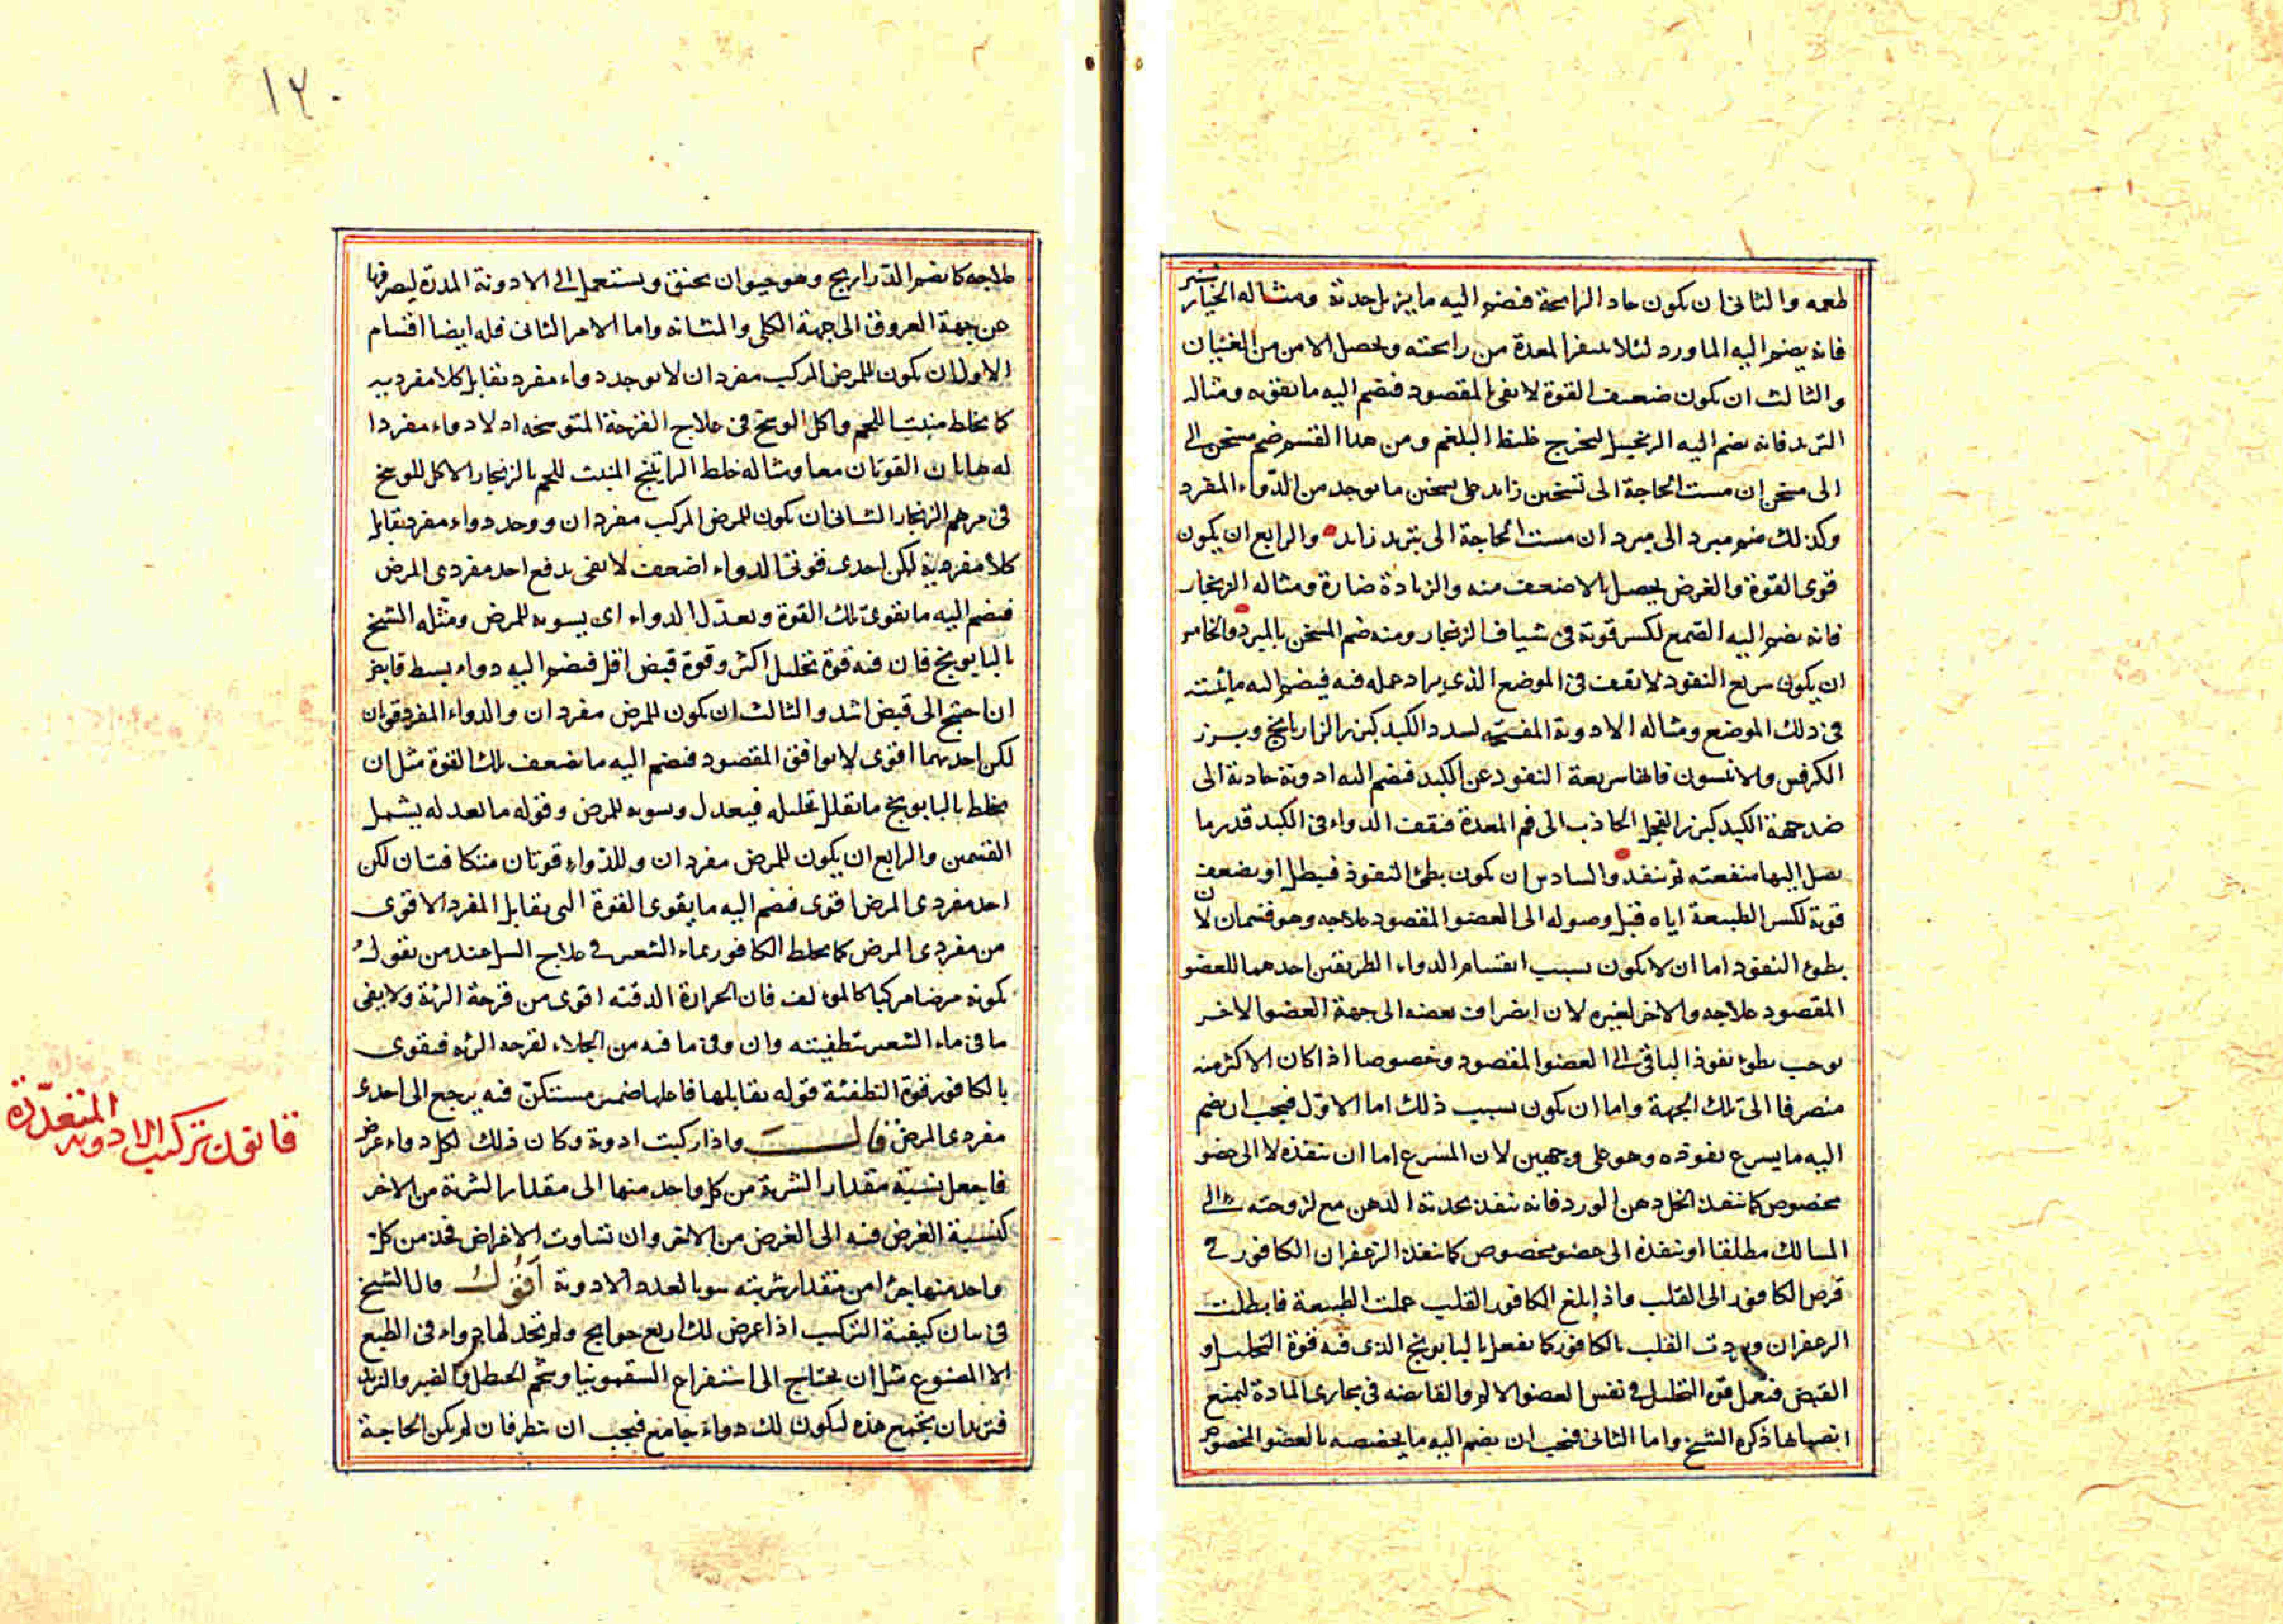 طعمه والثانى ان يكون حاد الرائحة فنضم اليه ما يزيل حدته ومثاله الخيار شنبر
فانه يضم اليه الماورد لئلا تنفر المعدة من رائحته ويحصل الامن من الغثيان
والثالث ان يكون ضعيف القوة لا يفى بالمقصود فنضم اليه ما يقويه ومثاله
التربد فانه يضم اليه الزنجبيل ليخرج غليظ البلغم ومن هذا القسم ضم مسخن الى
الى مسخن ان مست الحاجة الى تسخين زايد على تسخين ما يوجد من الدواء المفرد
وكذلك ضم مبرد الى مبرد ان مست الحاجة الى تبريد زايد والرابع ان يكون
قوى القوة والغرض يحصل بالاضعف منه والزيادة ضارة ومثاله الزنجار
فانه يضم اليه الصمغ لكسر قوته فى شياف الزنجار ومنه ضم المسخن بالمبرد والخامس
ان يكون سريع النفوذ لا يقف فى الموضع الذى يراد عمله فيه فيضم اليه ما يثبته
فى ذلك الموضع ومثاله الادوية المفتحة لسدد الكبد كبزر الرازيانج وبزر
الكرفس والانيسون فانها سريعة النفوذ عن الكبد فنضم اليه ادوية جاذبة الى
ضد جهة الكبد كبزر الفجل الجاذب الى فم المعدة فيقف الدواء فى الكبد قدر ما
يصل اليها منفعته ثم ينفذ والسادس ان يكون بطئ النفوذ فيبطل او يضعف
قوته لكسر الطبيعة اياه قبل وصوله الى العضو المقصود علاجه وهو قسمان لان
بطوء النفوذ اما ان لا يكون بسبب انقسام الدواء الطريقين احدهما للعضو
المقصود علاجه والاخر لغيره لان انصراف بعضه الى جهة العضو الاخر
يوجب بطوء نفوذ الباقى الى العضو المقصود وخصوصا اذا كان الاكثر منه
منصرفا الى تلك الجهة واما ان يكون بسبب ذلك اما الاول فيجب ان يضم
اليه ما يسرع نفوذه وهو على وجهين لان المسرع اما ان ينفذه لا الى عضو
مخصوص كما ينفذ الخل دهن الورد فانه ينفذ بحدته الدهن مع لزوجته الى
المسالك مطلقا او ينفذه الى عضو مخصوص كما ينفذ الزعفران الكافور فى
قرص الكافور الى القلب واذا بلغ الكافور القلب عملت الطبيعة فابطلت
الزعفران وبردت القلب بالكافور كما يفعل بالبابونج الذى فيه قوة التحليل و
القبض فيعمل قوة التحليل فى نفس العضو الالم والقابضة فى مجارى المادة ليمنع
انصبابها ذكره الشيخ واما الثانى فيجب ان يضم اليه ما يخصصه بالعضو المخصوص
١٢٠
علاجه كما يضم الذراريح وهو حيوان يخنق ويستعمل الى الادوية المدرة ليصرفها
عن جهة العروق الى جهة الكلى والمثانه واما الامر الثانى فله ايضا اقسام
الاول ان يكون للمرض المركب مفردان لا يوجد دواء مفرد يقابل كلا مفرديه
كما يخلط منبتا للحم واكل الوسخ فى علاج القرحة المتوسخه اذ لا دواء مفردا
له هاتان القوتان معا ومثاله خلط الراتينج المنبت للحم بالزنجار الاكل للوسخ
فى مرهم الزنجار الثانى ان يكون للمرض المركب مفردان ووجد دواء مفرد يقابل
كلا مفرديه لكن احدى قوتى الدواء اضعف لا يفى بدفع احد مفردى المرض
فيضم اليه ما يقوى تلك القوة ويعدل الدواء اى يسويه للمرض ومثله الشيخ
بالبابونج فان فيه قوة تحليل اكثر وقوة قبض اقل فيضم اليه دواء بسيط قابض
ان احتيج الى قبض اشد والثالث ان يكون للمرض مفردان والدواء المفرد قوتان
لكن احدهما اقوى لا يوافق المقصود فيضم اليه ما يضعف تلك القوة مثل ان
يخلط بالبابونج ما يقلل تحليله فيعدل ويسويه للمرض وقوله ما يعدله يشمل
القسمين والرابع ان يكون للمرض مفردان وللدواء قوتان متكافئتان لكن
احد مفردى المرض اقوى فيضم اليه ما يقوى القوة التى يقابل المفرد الاقوى
من مفردى المرض كما يخلط الكافور بماء الشعير فى علاج السل عند من يقول
بكونه مرضا مركبا كالمؤلف فان الحرارة الدقية اقوى من قرحة الرئة ولا يفى
ما فى ماء الشعير بتطفيته وان وفى ما فيه من الجلاء لقرحه الرئه فيقوى
بالكافور قوة التطفئة قوله يقابلها فاعلها ضمير مستكن فيه يرجع الى احدى
مفردى المرض قال واذا ركبت ادوية وكان ذلك لكل دواء غرض
فاجعل نسبة مقدار الشربة من كل واحد منها الى مقدار الشربة من الاخر
كنسبة الغرض فيه الى الغرض من الاخر وان تساوت الاغراض فخذ من كل
واحد منها جزءا من مقدار شربته سويا لعدد الادوية اقول قال الشيخ
فى بيان كيفية التركيب اذا عرض لك اربع حوايج ولم تجد لها دواء فى الطبع
الا المصنوع مثل ان يحتاج الى استفراغ السقمونيا وشحم الحنظل والصبر والتربد
فتريد ان يجتمع هذه ليكون لك دواء جامع فيجب ان ينظر فان لم يكن الحاجة
قانون تركيب الادوية
المتعددة